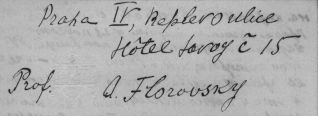 Praha IV, Keplerova ulice
Hôtel Savoy č 15
Prof. A. Florovsky